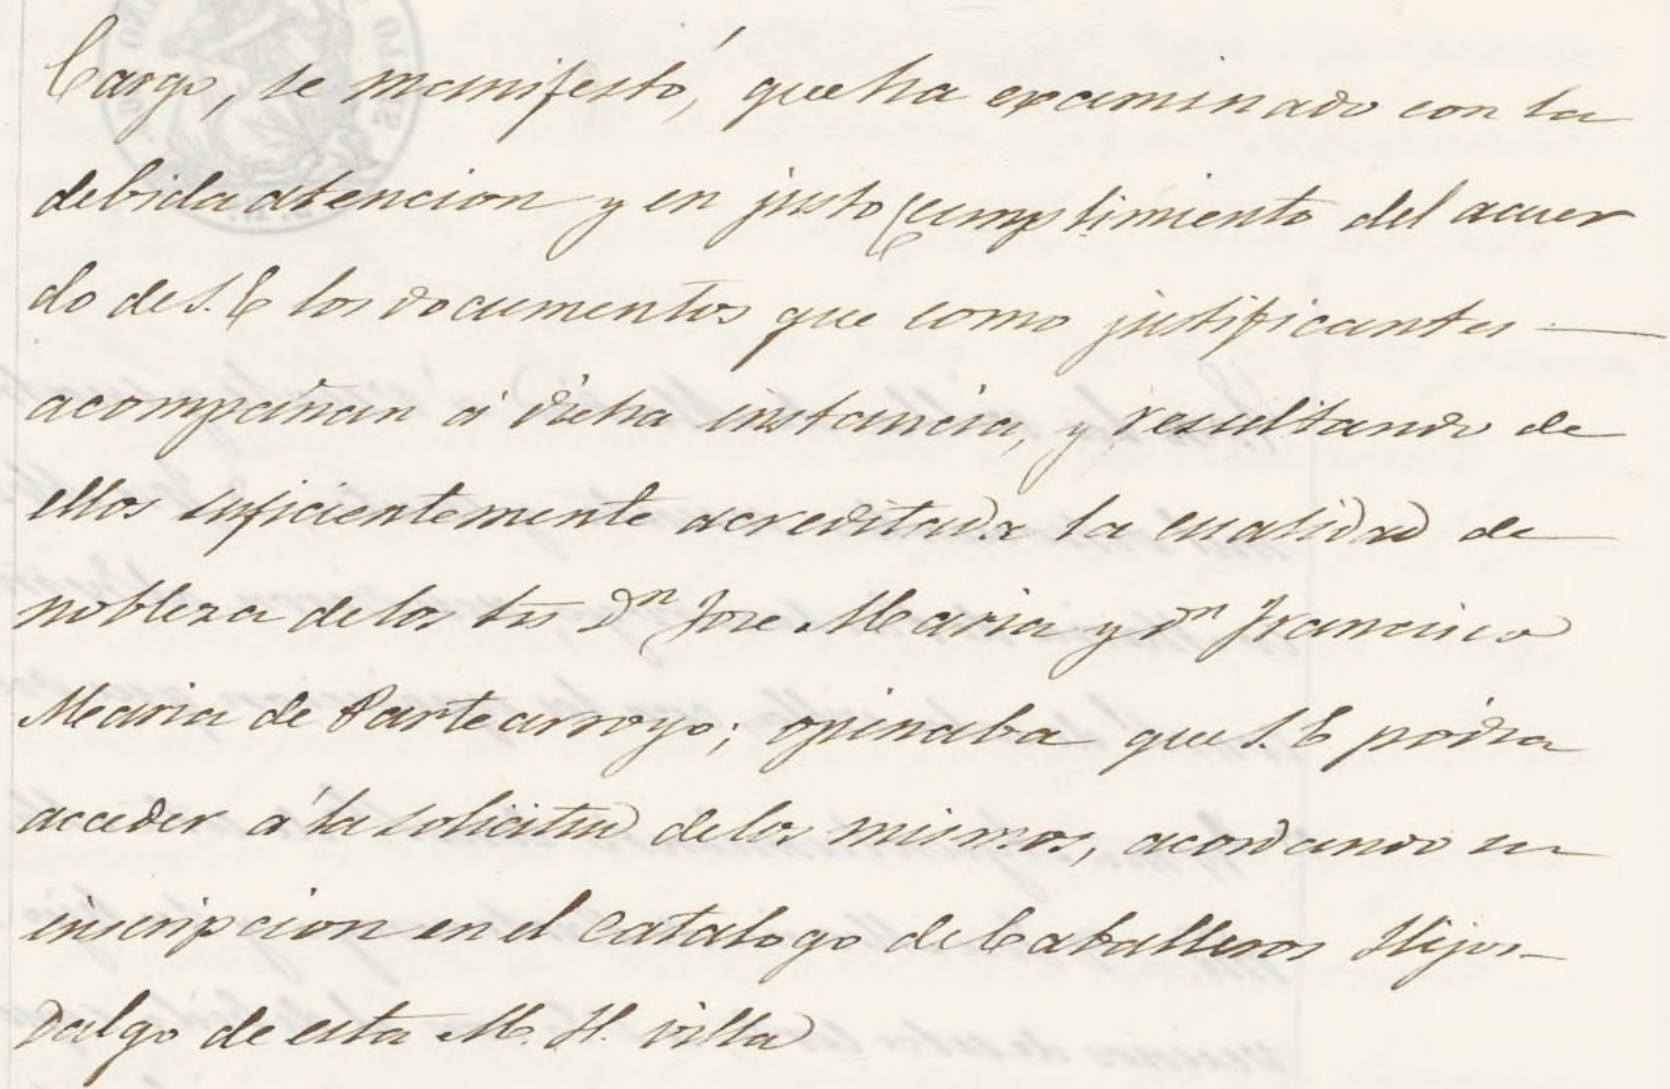 Cargo, se manifestó, que ha examinado con la
debida atencion y en justo cumplimiento del acuer
do de S. E los documentos que como justificantes —
acompañan á dicha instancia, y resultando de
ellos suficientemente acreditada la cualidad de
nobleza de los Dn Jose Maria y Dn Francisco
Maria de Partearroyo; opinaba que S. E podia
acceder á la solicitud de los mismos, acordando su
inscripcion en el Catalogo de Caballeros Hijos-
Dalgo de esta M. H. villa